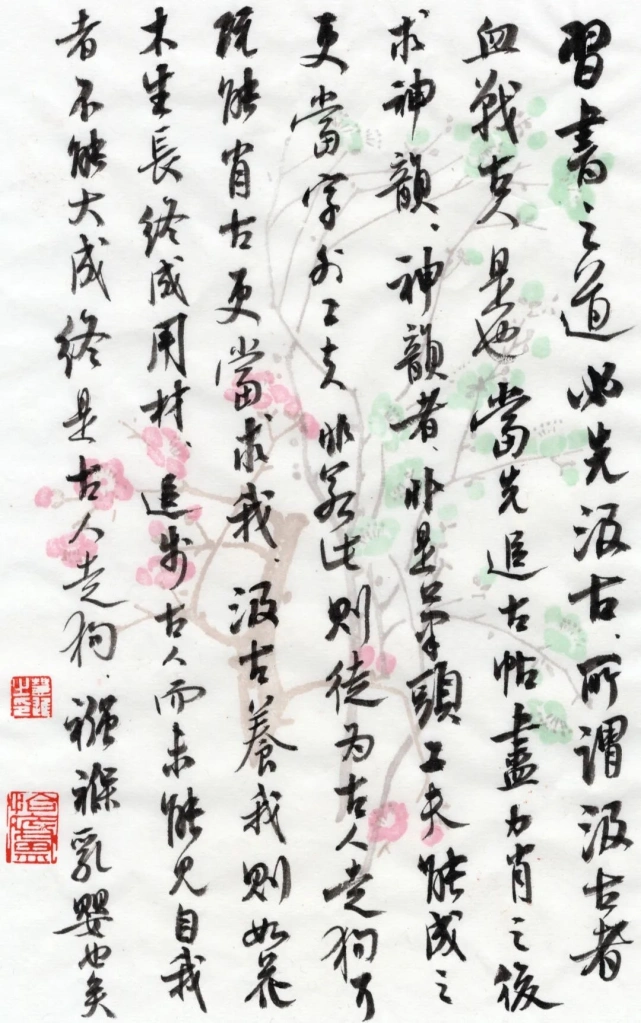 習書之道必先汲古、所謂汲古者
血戰古人是也當先追古帖盡力肖之後
求神韻、神韻者、非是笔頭工夫能成之
更當字外工夫非若此則徒為古人走狗可
既能肖古更當求我、汲古養我則如花
木生長終成用材、追步古人而未能見自我
者不能大成終是古人走狗、襁褓乳嬰也矣